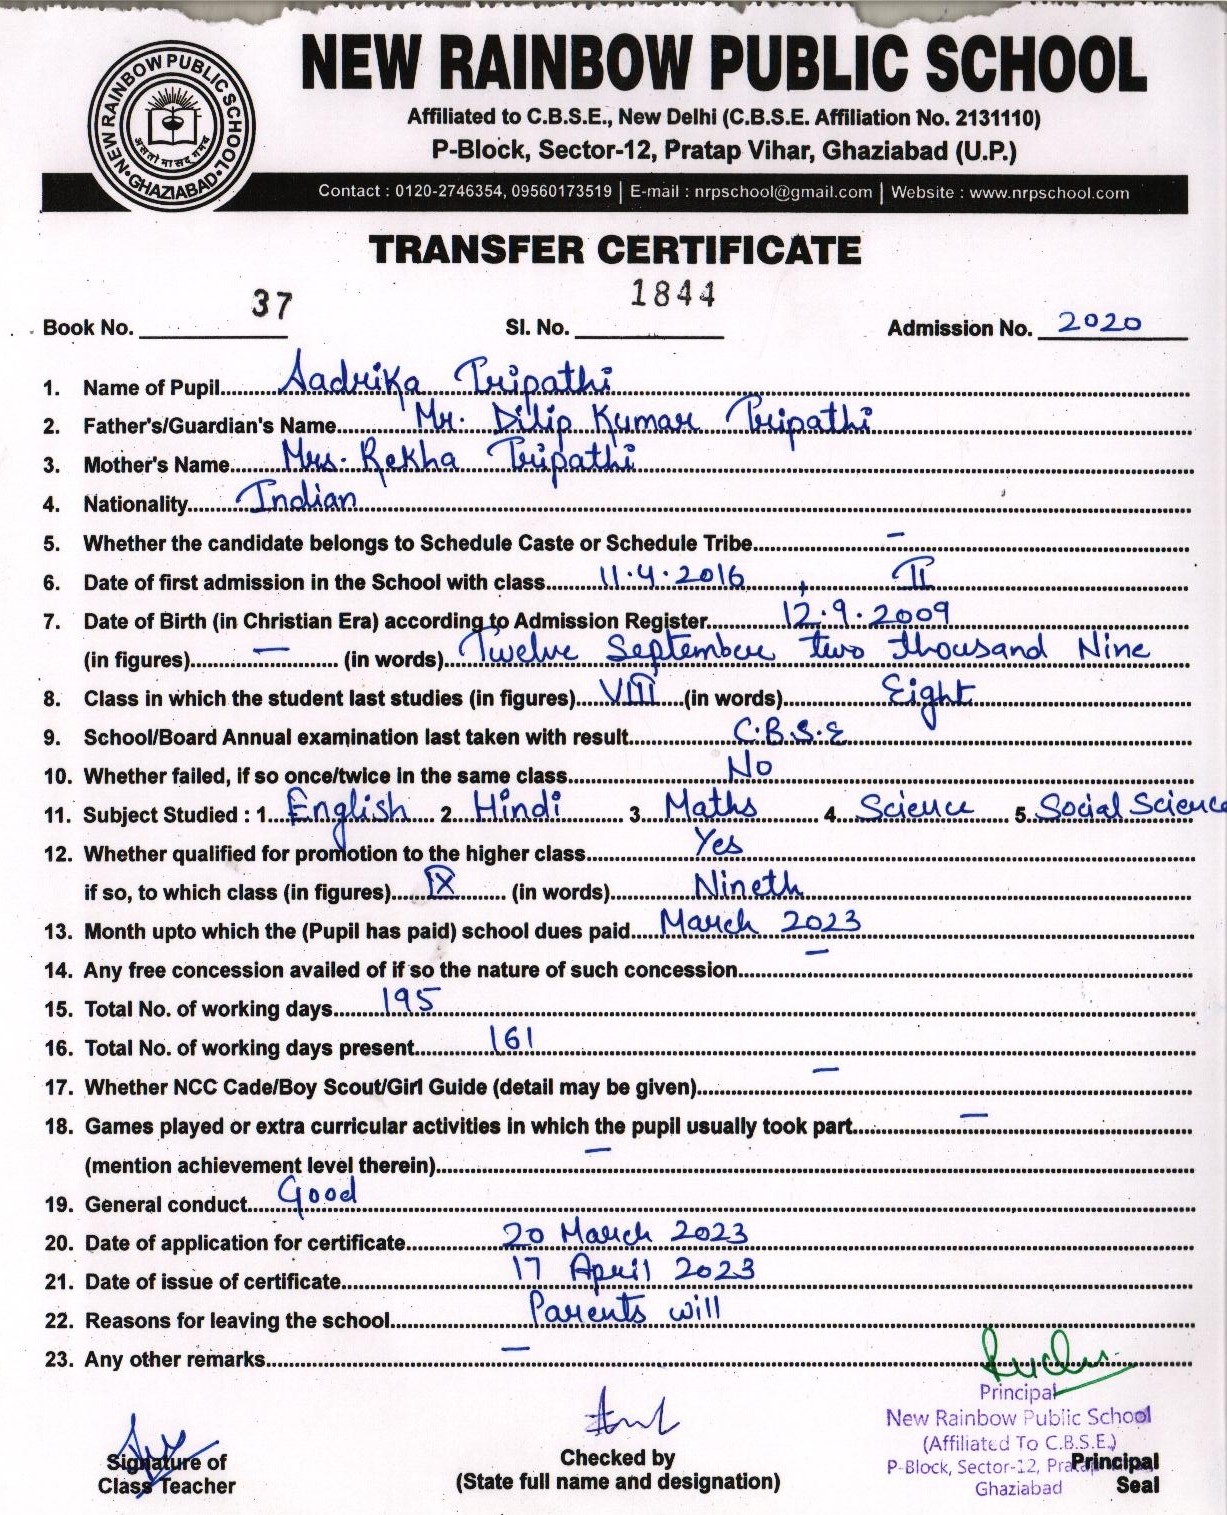 NEW RAINBOW PUBLIC SCHOOL
NEW RAINBOW PUBLIC SCHOOL
असतो मा सद् गमय
GHAZIABAD
Affiliated to C.B.S.E., New Delhi (C.B.S.E. Affiliation No. 2131110)
P-Block, Sector-12, Pratap Vihar, Ghaziabad (U.P.)
Contact : 0120-2746354, 09560173519 | E-mail : nrpschool@gmail.com | Website : www.nrpschool.com
TRANSFER CERTIFICATE
Book No. 37 Sl. No. 1844 Admission No. 2020
1. Name of Pupil Aadrika Tripathi
2. Father's/Guardian's Name Mr. Dilip Kumar Tripathi
3. Mother's Name Mrs. Rekha Tripathi
4. Nationality Indian
5. Whether the candidate belongs to Schedule Caste or Schedule Tribe —
6. Date of first admission in the School with class 11.4.2016, II
7. Date of Birth (in Christian Era) according to Admission Register 12.9.2009
(in figures) — (in words) Twelve September two thousand Nine
8. Class in which the student last studies (in figures) VIII (in words) Eight
9. School/Board Annual examination last taken with result C.B.S.E
10. Whether failed, if so once/twice in the same class No
11. Subject Studied : 1. English 2. Hindi 3. Maths 4. Science 5. Social Science
12. Whether qualified for promotion to the higher class Yes
if so, to which class (in figures) IX (in words) Nineth
13. Month upto which the (Pupil has paid) school dues paid March 2023
14. Any free concession availed of if so the nature of such concession —
15. Total No. of working days 195
16. Total No. of working days present 161
17. Whether NCC Cade/Boy Scout/Girl Guide (detail may be given) —
18. Games played or extra curricular activities in which the pupil usually took part —
(mention achievement level therein) —
19. General conduct Good
20. Date of application for certificate 20 March 2023
21. Date of issue of certificate 17 April 2023
22. Reasons for leaving the school Parents will
23. Any other remarks —
Principal
New Rainbow Public School
(Affiliated To C.B.S.E.)
P-Block, Sector-12,
Ghaziabad
Signature of
Class Teacher
Checked by
(State full name and designation)
Principal
Seal